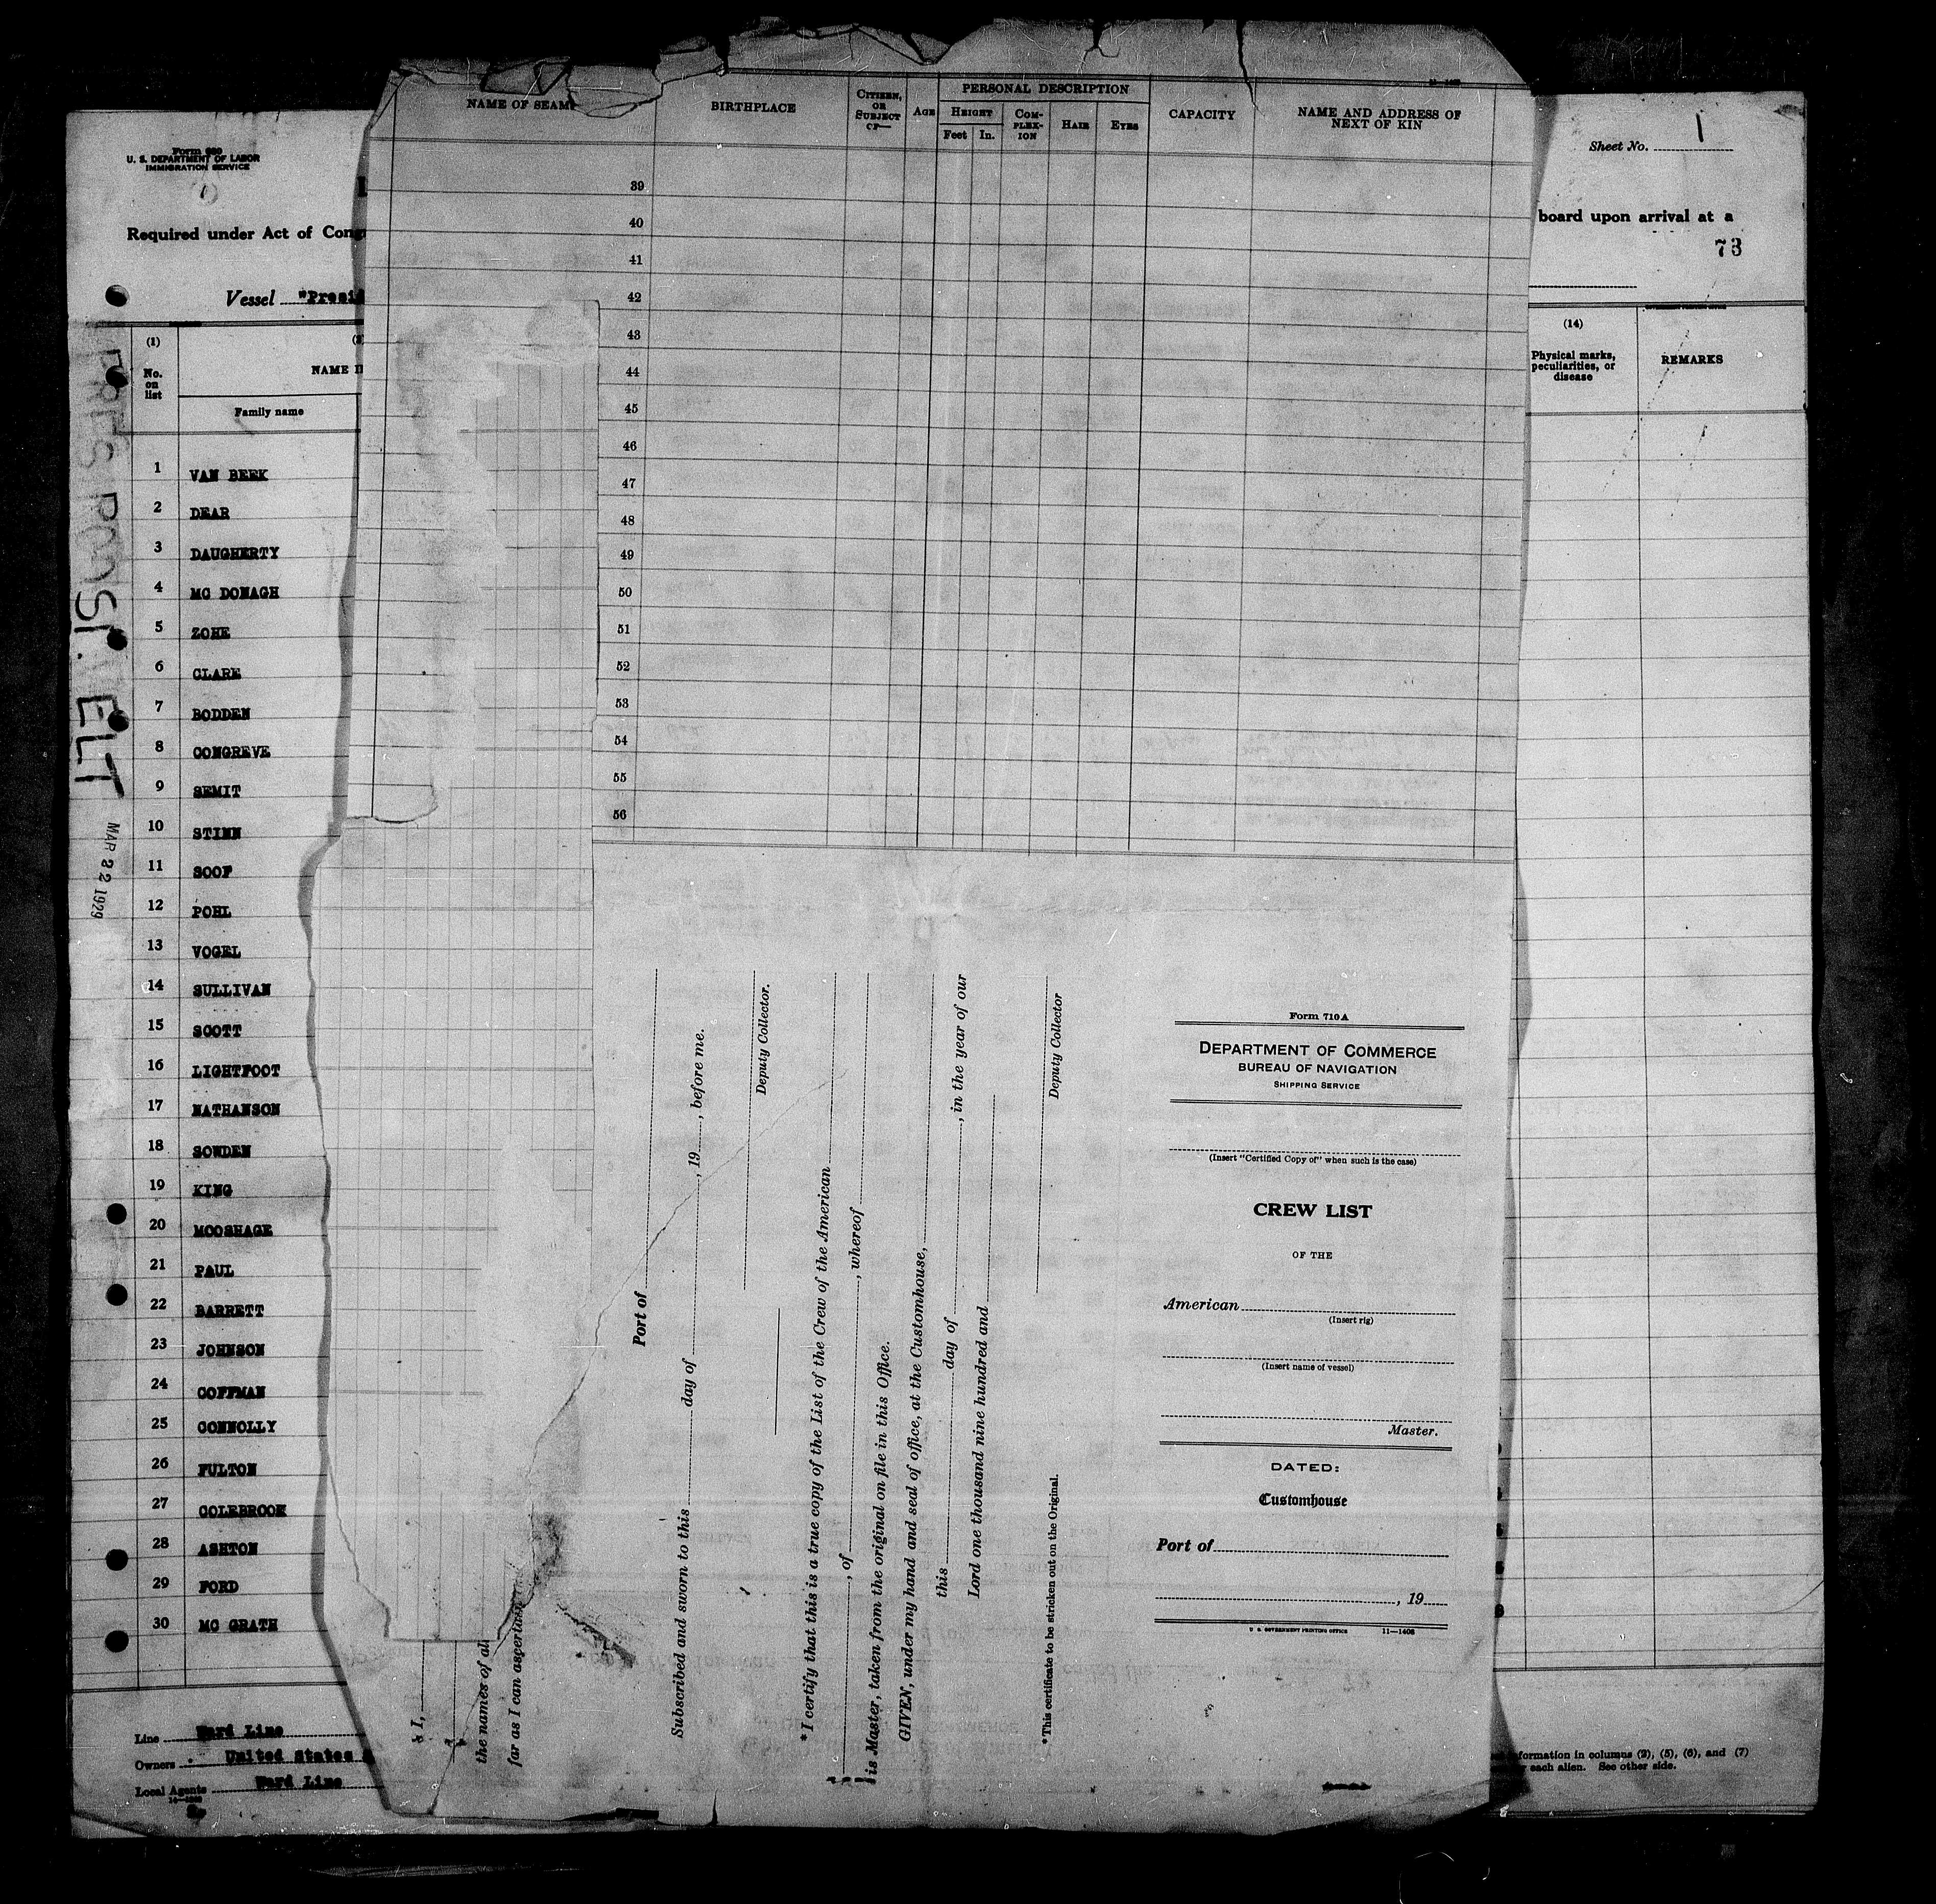 Form 680
U. S. DEPARTMENT OF LABOR
IMMIGRATION SERVICE
Required under Act of Cong
Vessel "Presid
(1)
No.
on
list
NAME I
Family name
1 VAN BEEK
2 DEAR
3 DAUGHERTY
4 MC DONAGH
5 ZOHE
6 CLARE
7 BODDEN
8 CONGREVE
9 SEMIT
10 STINN
11 SOOF
12 POHL
13 VOGEL
14 SULLIVAN
15 SCOTT
16 LIGHTFOOT
17 NATHANSON
18 SOWDEN
19 KING
20 MOOSHAGE
21 PAUL
22 BARRETT
23 JOHNSON
24 COFFMAN
25 CONNOLLY
26 FULTON
27 COLEBROOK
28 ASHTON
29 FORD
30 MC GRATH
Line Ward Line
Owners United States
Local Agents Ward Line
PRES ROOSEVELT
MAR 22 1929
NAME OF SEAM
BIRTHPLACE
CITIZEN,
OR
SUBJECT
OF—
AGE
PERSONAL DESCRIPTION
HEIGHT
Feet In.
COM-
PLEX-
ION
HAIR
EYES
CAPACITY
NAME AND ADDRESS OF
NEXT OF KIN
39
40
41
42
43
44
45
46
47
48
49
50
51
52
53
54
55
56
I,
the names of all
far as I can ascertain
Port of
Subscribed and sworn to this day of , 19 , before me.
Deputy Collector.
*I certify that this is a true copy of the List of the Crew of the American
, of , whereof
is Master, taken from the original on file in this Office.
GIVEN, under my hand and seal of office, at the Customhouse,
this day of , in the year of our
Lord one thousand nine hundred and
Deputy Collector
*This certificate to be stricken out on the Original.
Form 710A
DEPARTMENT OF COMMERCE
BUREAU OF NAVIGATION
SHIPPING SERVICE
(Insert "Certified Copy of" when such is the case)
CREW LIST
OF THE
American
(Insert rig)
(Insert name of vessel)
Master.
DATED:
Customhouse
Port of
, 19
U. S. GOVERNMENT PRINTING OFFICE 11—1408
Sheet No. 1
board upon arrival at a
73
(14)
Physical marks,
peculiarities, or
disease
REMARKS
information in columns (2), (5), (6), and (7)
each alien. See other side.